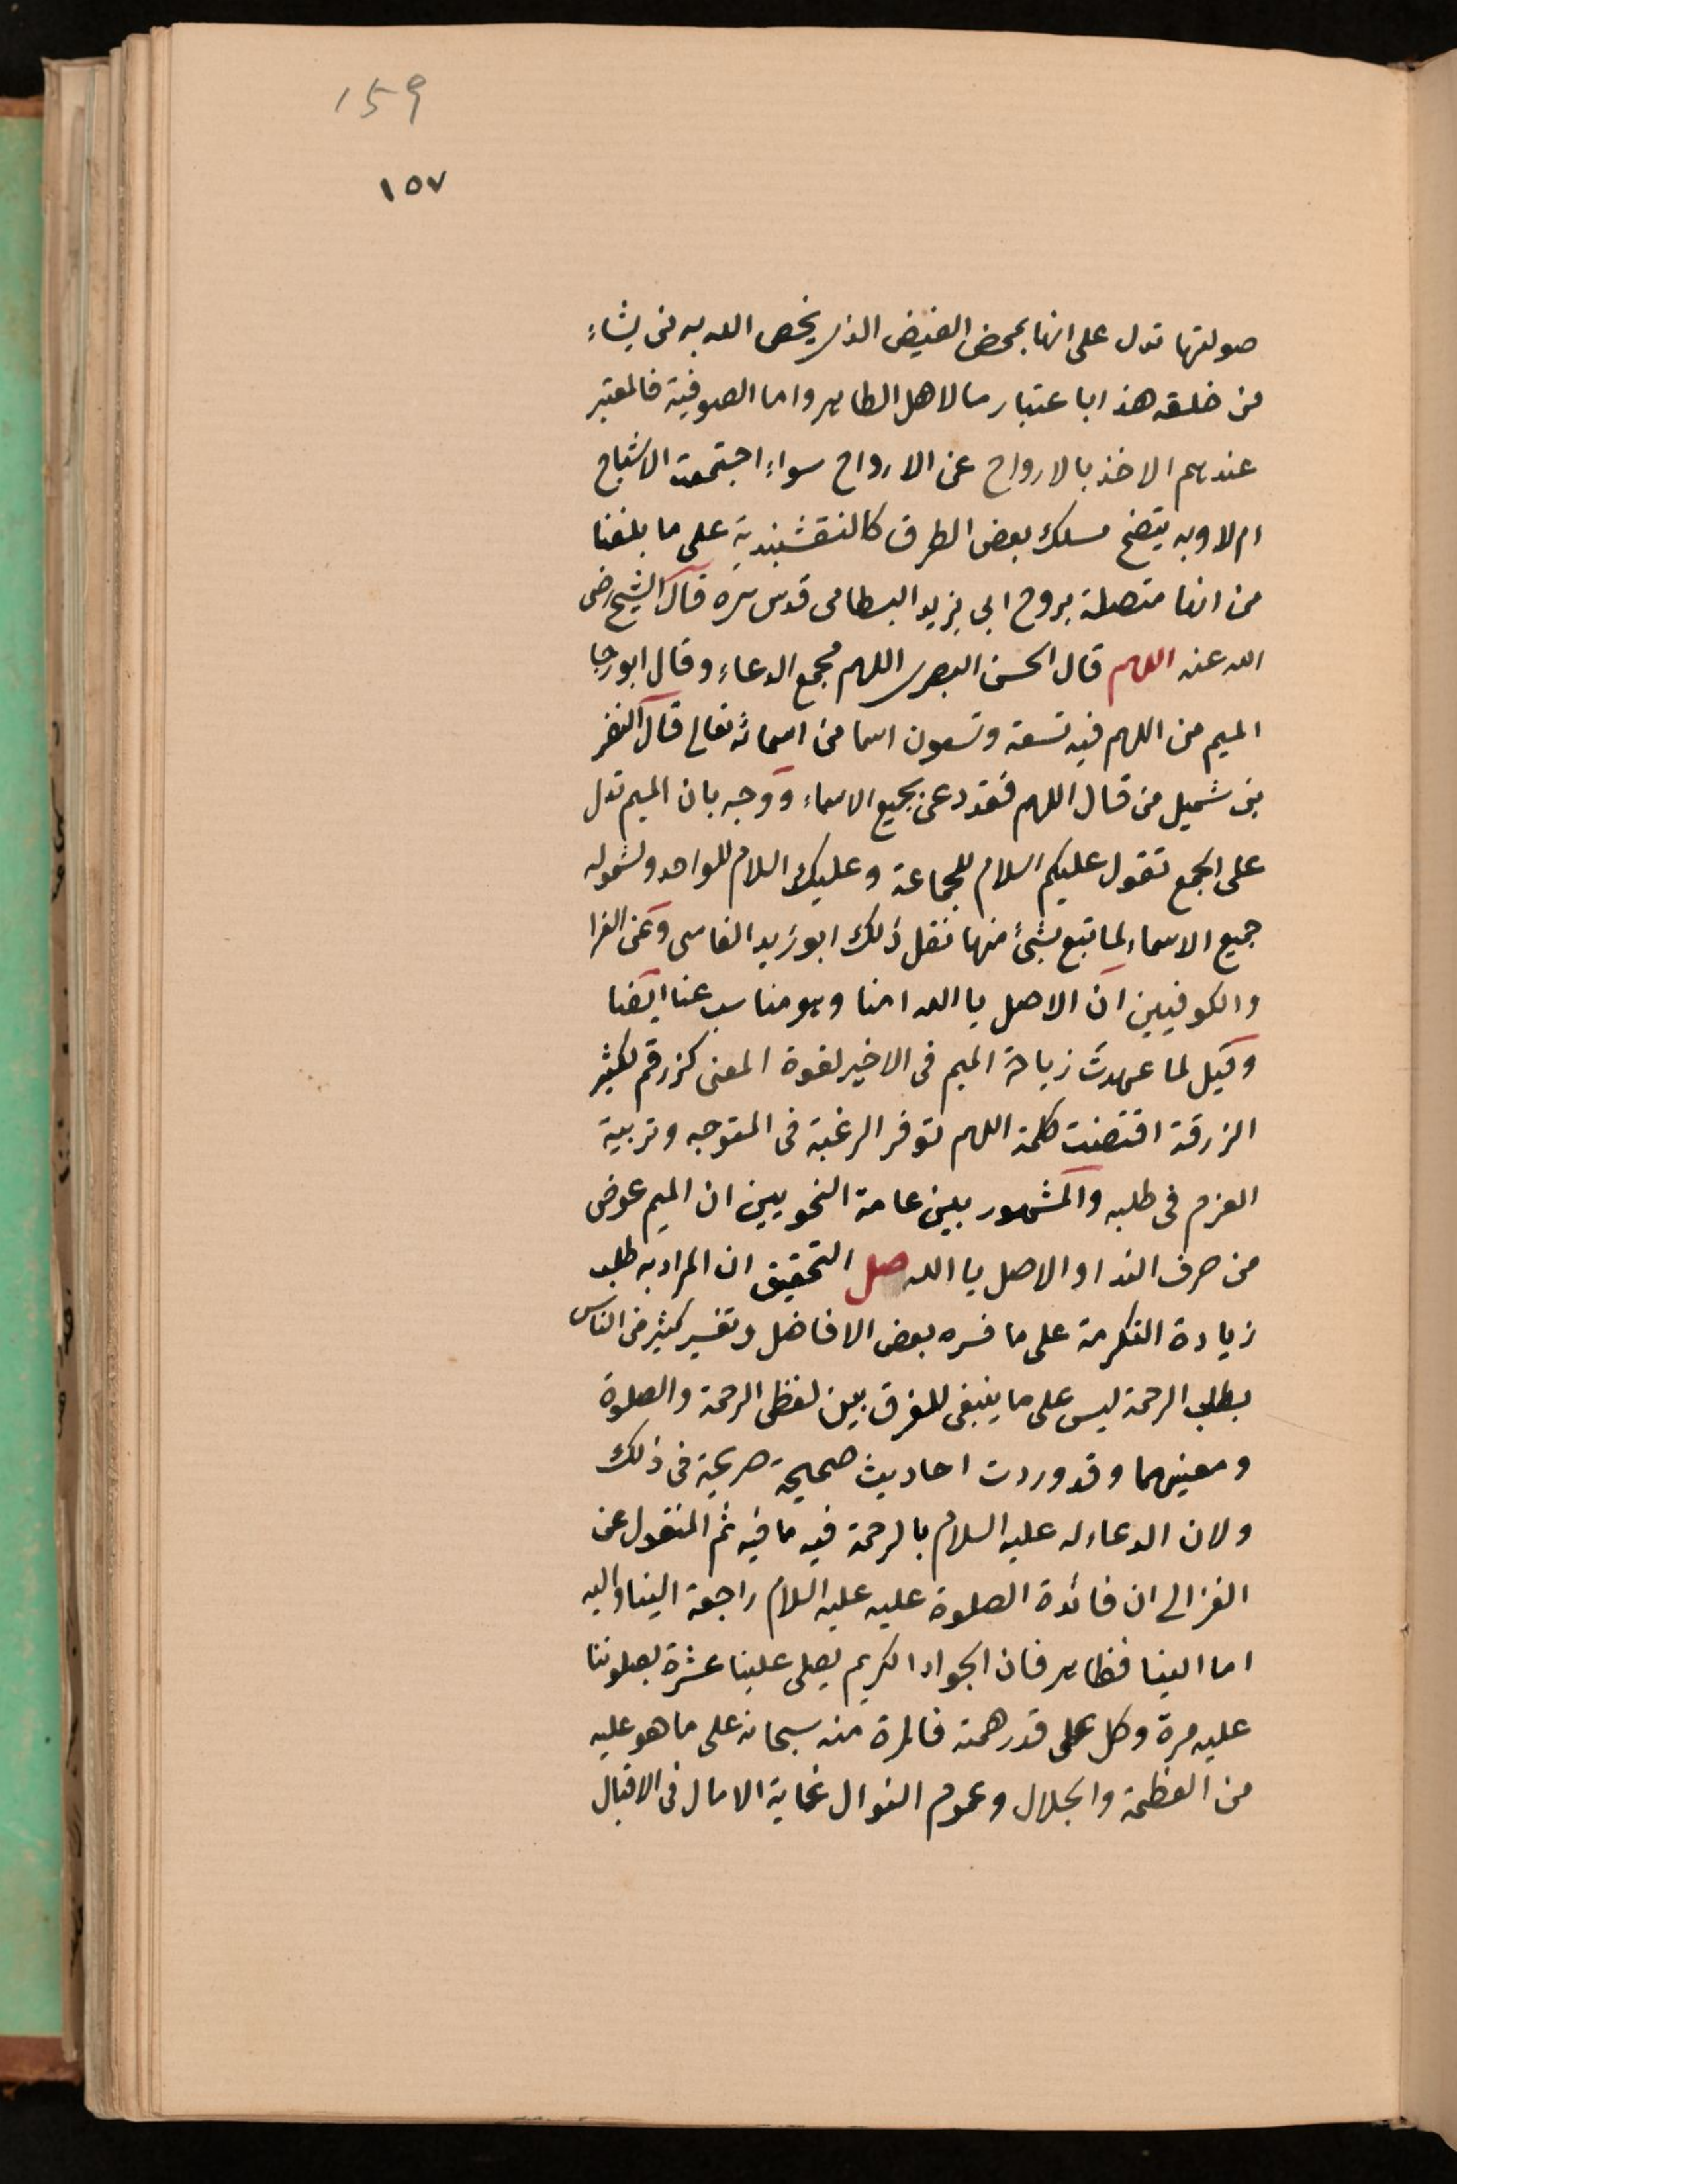 159
١٥٧
صولتها تدل على انها بمحض الفيض الذى يخص الله به من يشاء
من خلقه هذا باعتبار ما لاهل الظاهر واما الصوفية فالمعتبر
عندهم الاخذ بالارواح عن الارواح سواء اجتمعت الاشباح
ام لا وبه يتضح مسلك بعض الطرق كالنقشبندية على ما بلغنا
من انها متصلة بروح ابى يزيد البسطامى قدس سره قال الشيخ رضى
الله عنه اللهم قال الحسن البصرى اللهم مجمع الدعاء وقال ابو رجا
الميم من اللهم فيه تسعة وتسعون اسما من اسمائه تعالى قال النضر
بن شميل من قال اللهم فقد دعى بجميع الاسماء ووجه بان الميم تدل
على الجمع تقول عليكم السلام للجماعة وعليك السلام للواحد ولشموله
جميع الاسماء لما تبع بشئ منها نقل ذلك ابو زيد الفاسى وعن الفرا
والكوفيين ان الاصل يا الله امنا وهو مناسب عنا ايضا
وقيل لما عهدت زيادة الميم فى الاخير لقوة المعنى كزرقم لكثير
الزرقة اقتضت كلمة اللهم توفر الرغبة فى المتوجه وتربية
العزم فى طلبه والمشهور بين عامة النحويين ان الميم عوض
من حرف الندا والاصل يا الله صل التحقيق ان المراد به طلب
زيادة التكرمة على ما فسره بعض الافاضل وتفسير كثير من الناس
بطلب الرحمة ليس على ما ينبغى للفرق بين لفظى الرحمة والصلوة
ومعنيهما وقد وردت احاديث صحيحة صريحة فى ذلك
ولان الدعاء له عليه السلام بالرحمة فيه ما فيه ثم المنقول عن
الغزالى ان فائدة الصلوة عليه عليه السلام راجعة الينا واليه
اما الينا فظاهر فان الجواد الكريم يصلى علينا عشرة بصلوتنا
عليه مرة وكل على قدر همته فالمرة منه سبحانه على ما هو عليه
من العظمة والجلال وعموم النوال غاية الامال فى الاقبال